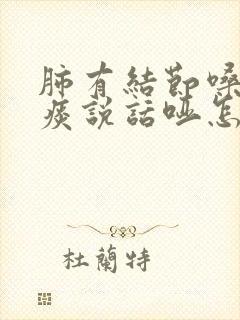 肺有結節嗓
痰說話啞怎
杜蘭特